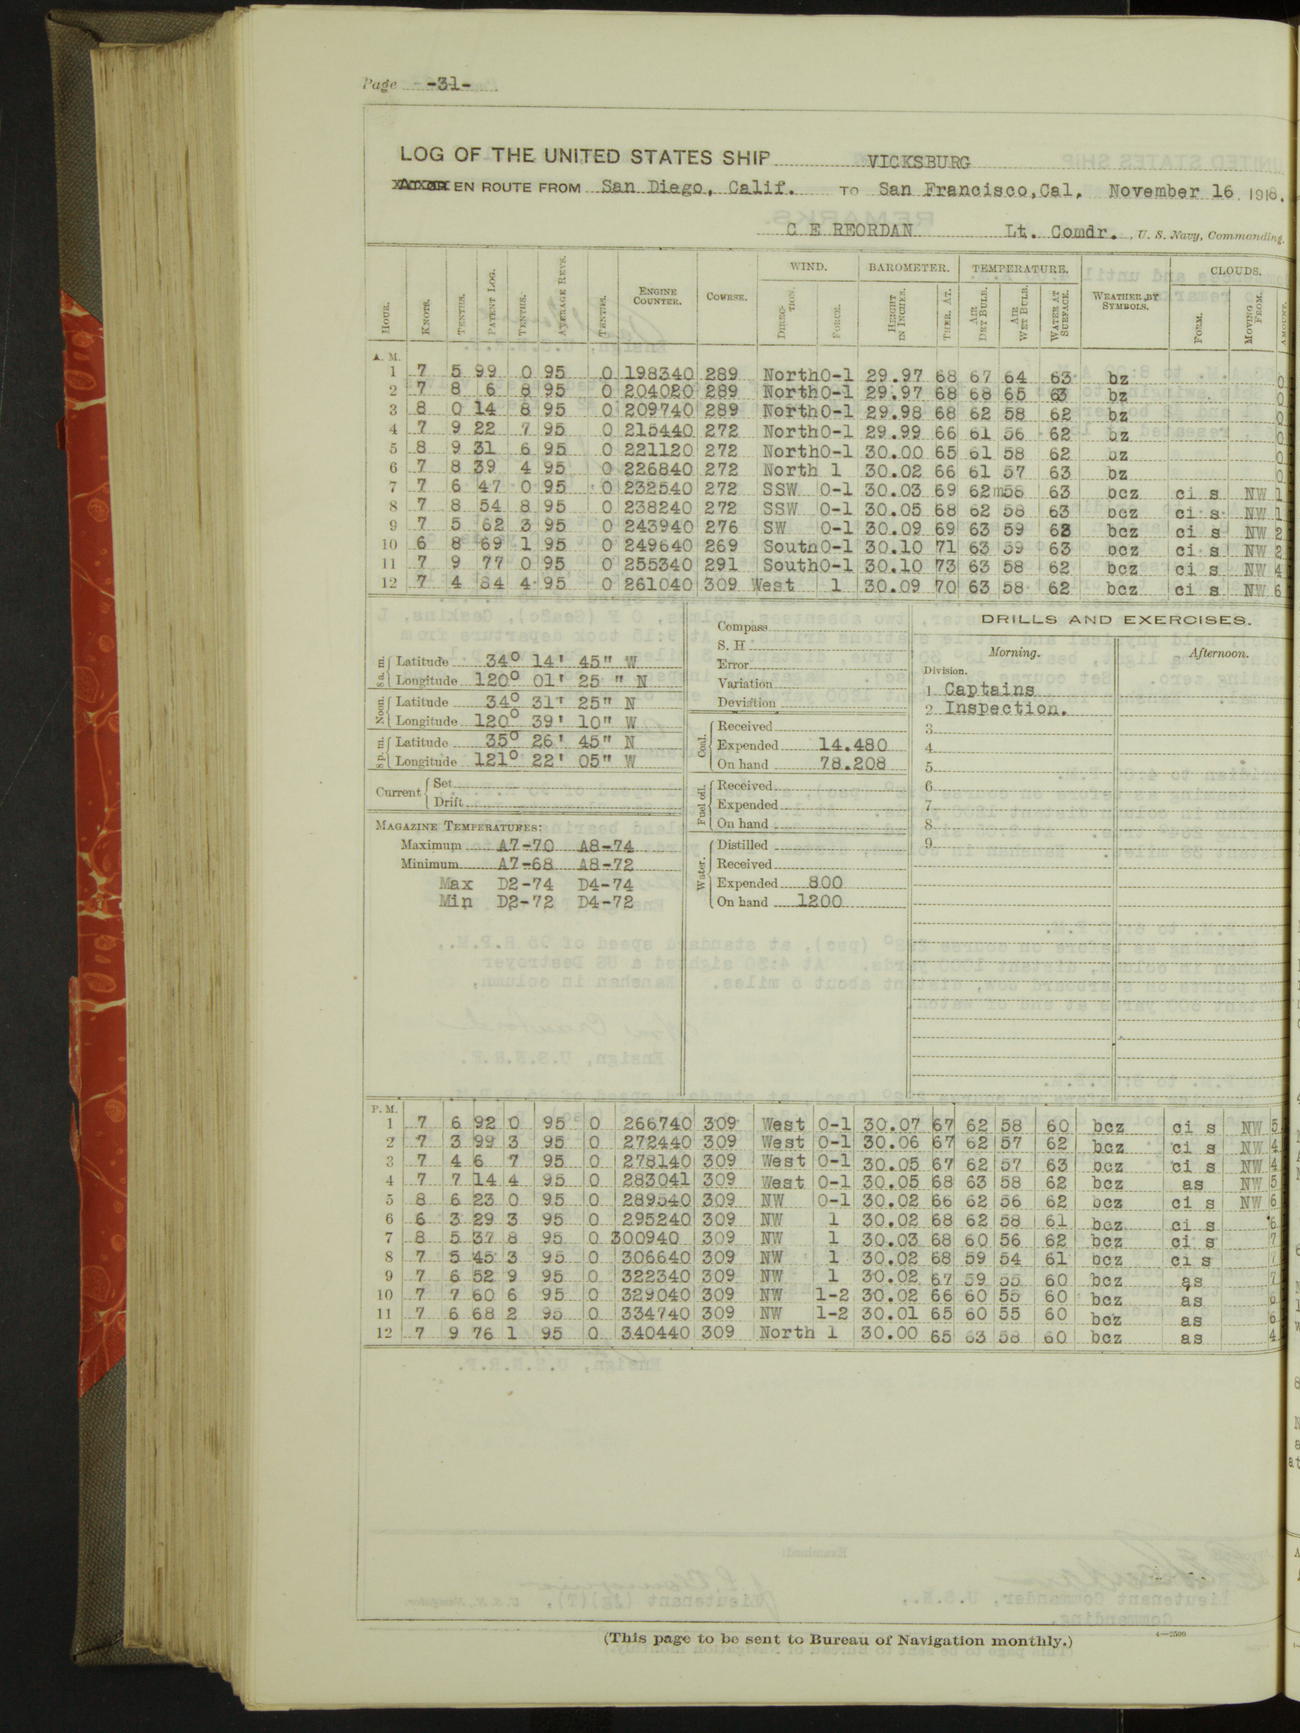 Page -31-
LOG OF THE UNITED STATES SHIP VICKSBURG
EN ROUTE FROM San Diego, Calif. TO San Francisco,Cal, November 16, 1918.
C E REORDAN Lt. Comdr. , U. S. Navy, Commanding.
WIND. BAROMETER. TEMPERATURE. CLOUDS.
HOUR. KNOTS. TENTHS. PATENT LOG. TENTHS. AVERAGE REVS. TENTHS. ENGINE COUNTER. COURSE. DIREC-TION. FORCE. HEIGHT IN INCHES. THER. AT. AIR DRY BULB. AIR WET BULB. WATER AT SURFACE. WEATHER BY SYMBOLS. FORM. MOVING FROM. AMOUNT.
A. M.
1 7 5 99 0 95 0 198340 289 North 0-1 29.97 68 67 64 63 bz 0
2 7 8 6 8 95 0 204020 289 North 0-1 29.97 68 68 65 63 bz 0
3 8 0 14 8 95 0 209740 289 North 0-1 29.98 68 62 58 62 bz 0
4 7 9 22 7 95 0 215440 272 North 0-1 29.99 66 61 56 62 bz 0
5 8 9 31 6 95 0 221120 272 North 0-1 30.00 65 61 58 62 bz 0
6 7 8 39 4 95 0 226840 272 North 1 30.02 66 61 57 63 bz 0
7 7 6 47 0 95 0 232540 272 SSW 0-1 30.03 69 62 58 63 bcz ci s NW 1
8 7 8 54 8 95 0 238240 272 SSW 0-1 30.05 68 62 58 63 bcz ci s NW 1
9 7 5 62 3 95 0 243940 276 SW 0-1 30.09 69 63 59 63 bcz ci s NW 2
10 6 8 69 1 95 0 249640 269 South 0-1 30.10 71 63 59 63 bcz ci s NW 2
11 7 9 77 0 95 0 255340 291 South 0-1 30.10 73 63 58 62 bcz ci s NW 4
12 7 4 84 4 95 0 261040 309 West 1 30.09 70 63 58 62 bcz ci s NW 6
8 a. m. Latitude 34° 14' 45" W
Longitude 120° 01' 25 " N
Noon. Latitude 34° 31' 25" N
Longitude 120° 39' 10" W
8 p. m. Latitude 35° 26' 45" N
Longitude 121° 22' 05" W
Current Set
Drift
MAGAZINE TEMPERATURES:
Maximum A7-70 A8-74
Minimum A7-68 A8-72
Max D2-74 D4-74
Min D2-72 D4-72
Compass
S. H
Error
Variation
Deviation
Coal. Received
Expended 14.480
On hand 78.208
Fuel oil. Received
Expended
On hand
Water. Distilled
Received
Expended 800
On hand 1200
DRILLS AND EXERCISES.
Morning. Afternoon.
Division.
1 Captains
2 Inspection.
3
4
5
6
7
8
9
P. M.
1 7 6 92 0 95 0 266740 309 West 0-1 30.07 67 62 58 60 bcz ci s NW 5
2 7 3 99 3 95 0 272440 309 West 0-1 30.06 67 62 57 62 bcz ci s NW 4
3 7 4 6 7 95 0 278140 309 West 0-1 30.05 67 62 57 63 bcz ci s NW 4
4 7 7 14 4 95 0 283041 309 West 0-1 30.05 68 63 58 62 bcz as NW 5
5 8 6 23 0 95 0 289540 309 NW 0-1 30.02 66 62 56 62 bcz ci s NW 6
6 6 3 29 3 95 0 295240 309 NW 1 30.02 68 62 58 61 bcz ci s 6
7 8 5 37 8 95 0 300940 309 NW 1 30.03 68 60 56 62 bcz ci s 7
8 7 5 45 3 95 0 306640 309 NW 1 30.02 68 59 54 61 bcz ci s 7
9 7 6 52 9 95 0 322340 309 NW 1 30.02 67 59 55 60 bcz as 7
10 7 7 60 6 95 0 329040 309 NW 1-2 30.02 66 60 55 60 bcz as
11 7 6 68 2 95 0 334740 309 NW 1-2 30.01 65 60 55 60 bcz as 6
12 7 9 76 1 95 0 340440 309 North 1 30.00 65 63 58 60 bcz as 4
(This page to be sent to Bureau of Navigation monthly.)
4—2500